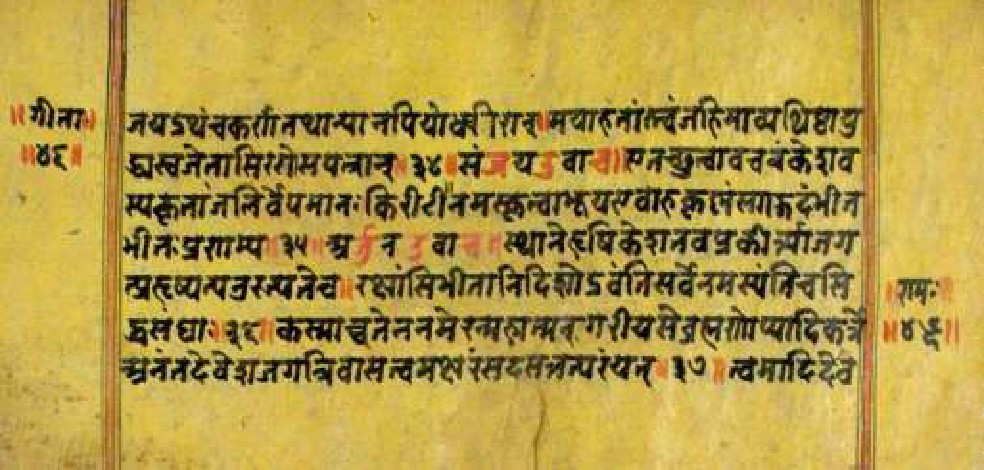 ॥गीता॥
॥४६॥
जयद्ऽथंचकर्णंतथान्यानपियोधवीरान्॥मयाहतांस्त्वंजहिमाव्यथिष्ठायु
द्ध्यस्वजेतासिरणेसपत्नान्॥३४॥संजयउवाच॥एतच्छ्रुत्वावचनंकेशव
स्यकृतांजलिर्वेपमानःकिरीटीनमस्कृत्वाभूयएवाहकृष्णंसगद्गदंभीत
भीतःप्रणम्य॥३५॥अर्जुनउवाच॥स्थानेहृषिकेशतवप्रकीर्त्याजग
त्प्रहृष्यत्यनुरज्यतेच॥रक्षांसिभीतानिदिशोऽवंतिसर्वेनमस्यंतिचसि
द्धसंघाः॥३६॥कस्माच्चतेननमेरन्महात्मन्गरीयसेब्रह्मणोप्यादिकर्त्रे
अनंतदेवेशजगन्निवासत्वमक्षरंसदसत्तत्परंयत्॥३७॥त्वमादिदेव
॥रामः॥
॥४६॥